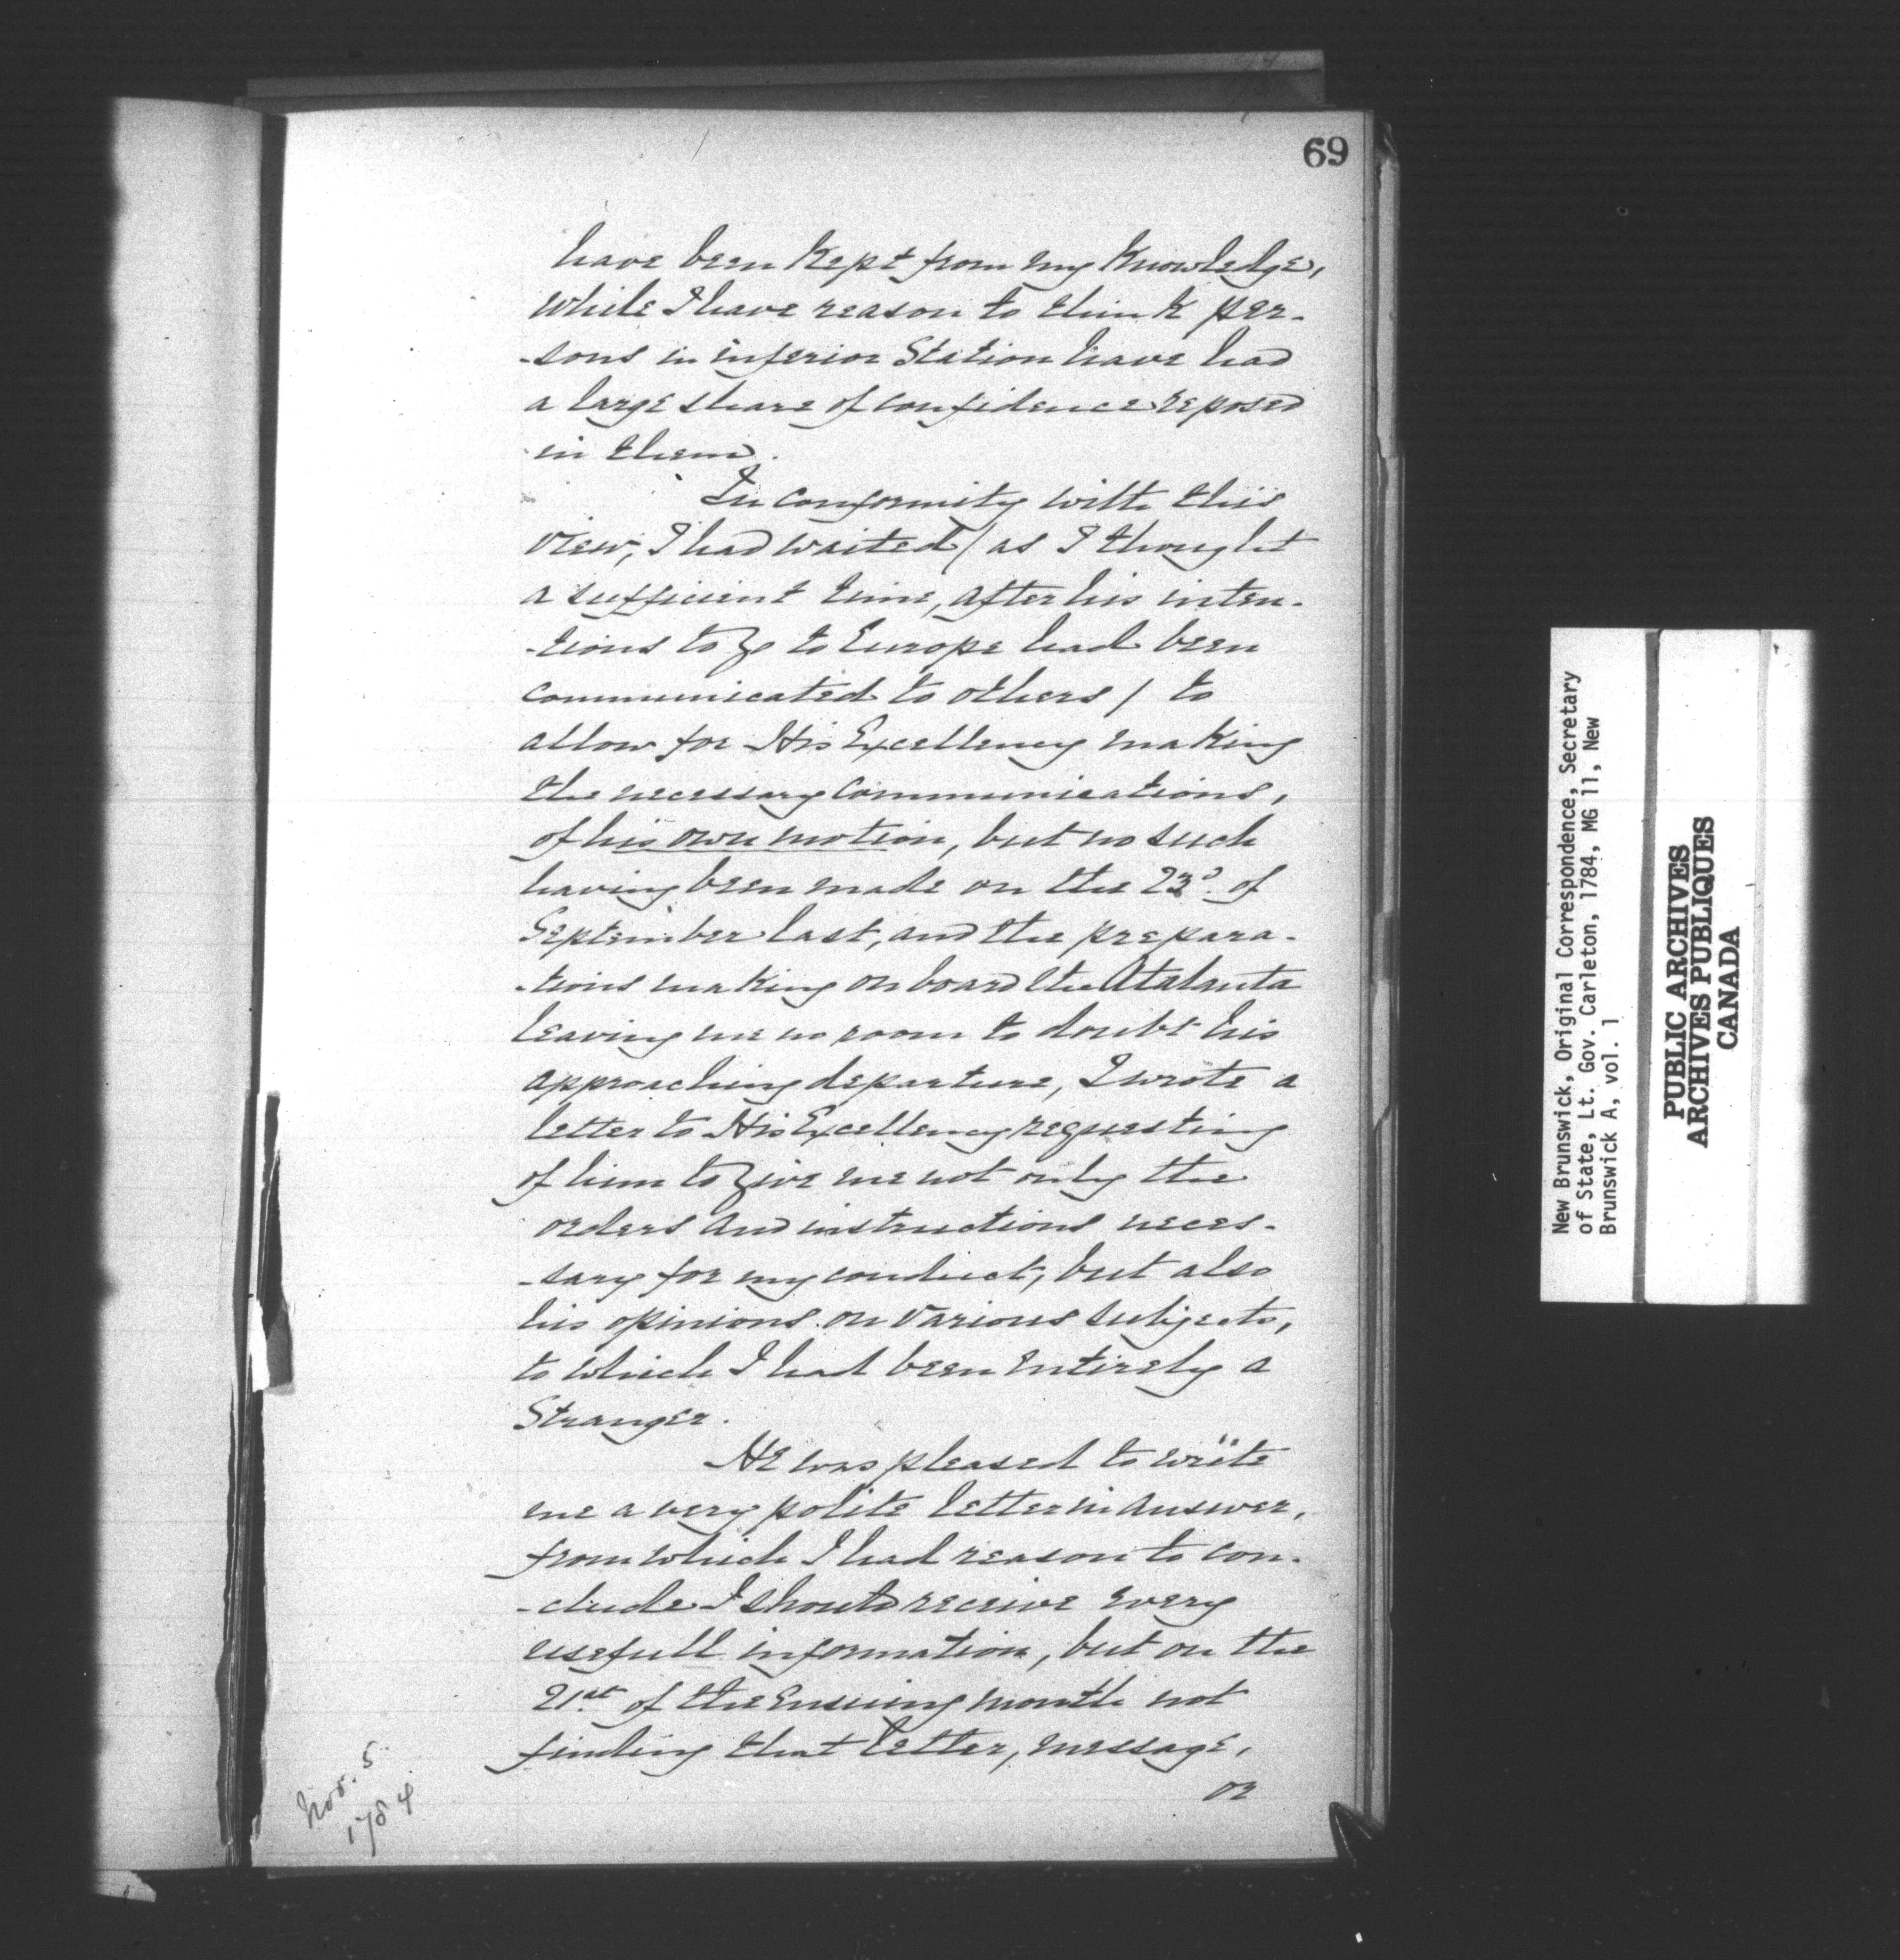 69
have been kept from my knowledge,
while I have reason to think per-
-sons in inferior Station have had
a large share of confidence reposed
in them.
In conformity with this
view, I had waited / as I thought
a sufficient time, after his inten-
-tions to go to Europe had been
communicated to others / to
allow for His Excellency making
the necessary communications,
of his own motion, but no such
having been made on the 23d. of
September last, and the prepara-
-tions making on board the Atalanta
leaving me no room to doubt his
approaching departure, I wrote a
letter to His Excellency requesting
of him to give me not only the
orders and instructions neces-
-sary for my conduct, but also
his opinions on various subjects,
to which I had been entirely a
Stranger.
He was pleased to write
me a very polite letter in answer,
from which I had reason to con-
-clude I should receive every
usefull information, but on the
21st. of the ensuing month not
finding that letter, message,
or
Nov. 5
1784
New Brunswick, Original Correspondence, Secretary
of State, Lt. Gov. Carleton, 1784, MG 11, New
Brunswick A, vol. 1
PUBLIC ARCHIVES
ARCHIVES PUBLIQUES
CANADA